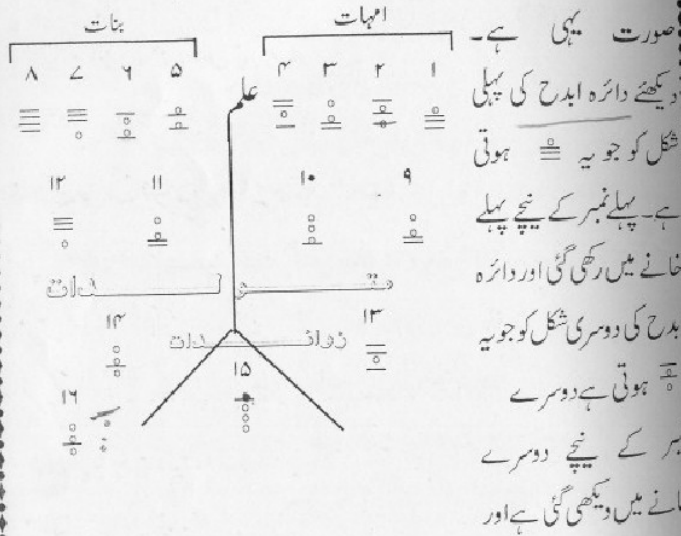 صورت یہی ہے۔
دیکھئے دائرہ ابدح کی پہلی
شکل کو جو یہ ہوتی
ہے۔ پہلے نمبر کے نیچے پہلے
خانے میں رکھی گئی اور دائرہ
ابدح کی دوسری شکل کو جو یہ
ہوتی ہے دوسرے
نمبر کے نیچے دوسرے
خانے میں دیکھی گئی ہے اور
امہات
بنات
۱ ۲ ۳ ۴
۵ ۶ ۷ ۸
علم
۹ ۱۰
۱۱ ۱۲
متولدات
زوائدات
۱۳
۱۴
۱۵
۱۶